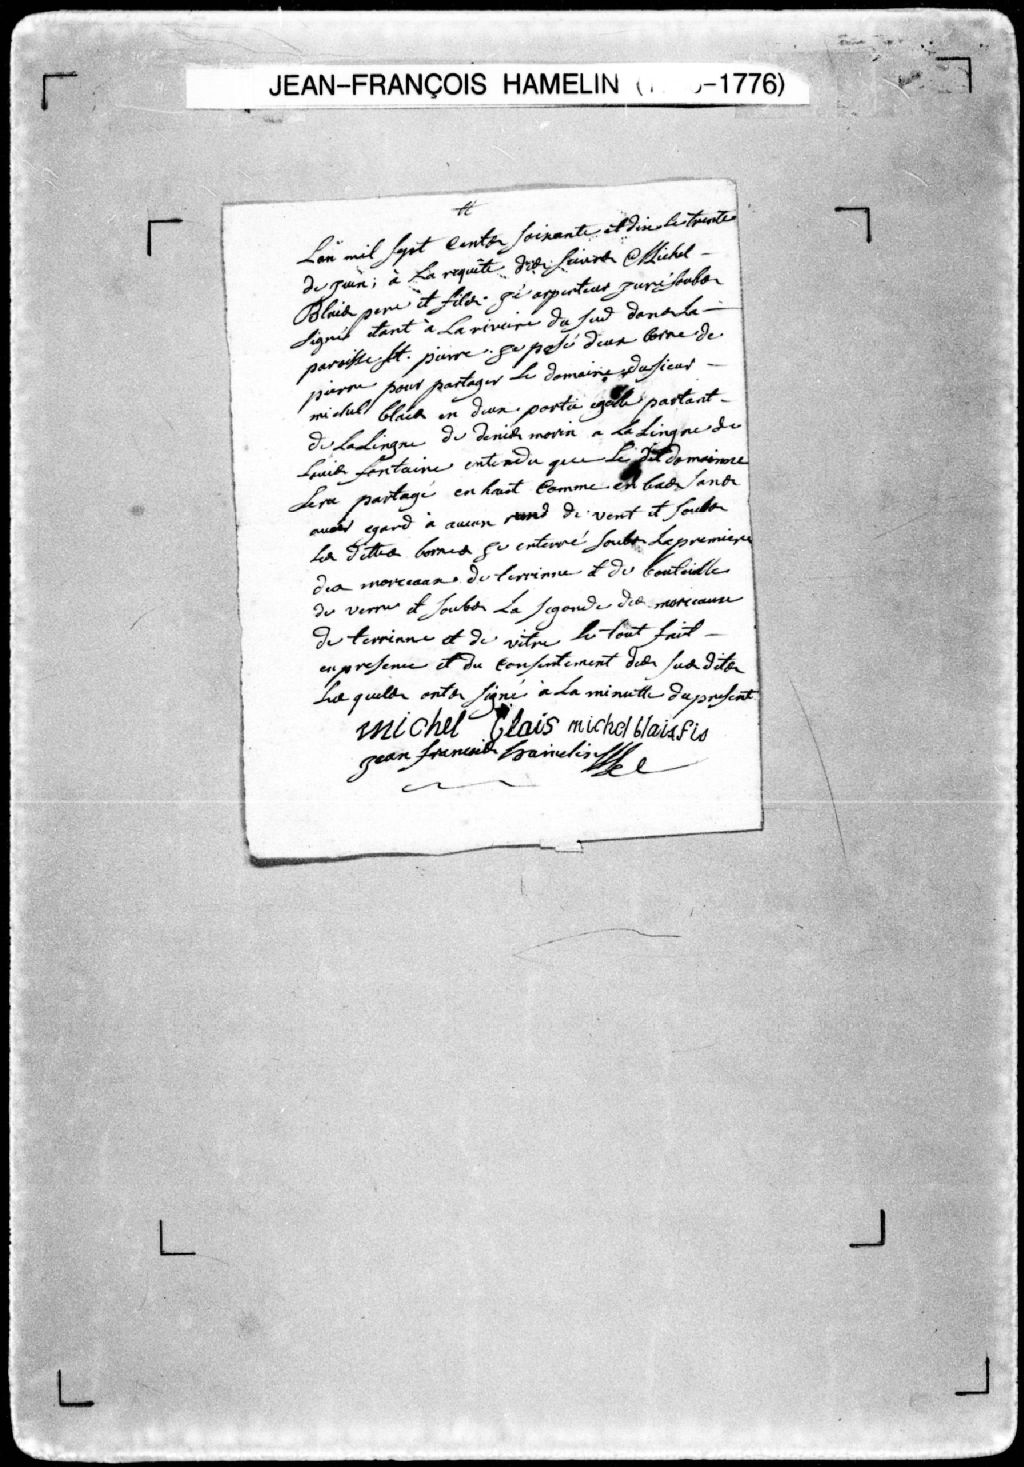 JEAN-FRANÇOIS HAMELIN ( -1776)
Lan mil sept Cents soixante et dix le trente
de juin; à La requête des sieurs Michel
Blais pere et fils. je arpenteur juré soubs
signé etant à La riviere du sud dans la
paroisse st. pierre. je posé deux borne de
pierre pour partager Le domaine du sieur
michel blais en deux partie egalle partant
de La Lingne de denis morin a La Lingne de
Louis fontaine entendu que Le dit domainne
sera partagé en haut Comme en bas sans
avoir egard à aucun rund de vent et soubs
Les dittes bornes je enterré soubs La premiere
des morceaux de terrinne et de bouteille
de verre et soubs La segonde des morceaux
de terrinne et de vitre Le tout fait
en presence et du consentement des sus dits
Les quels onts signé à La minutte du present
michel blais michel blais fis
jean francois hamelin